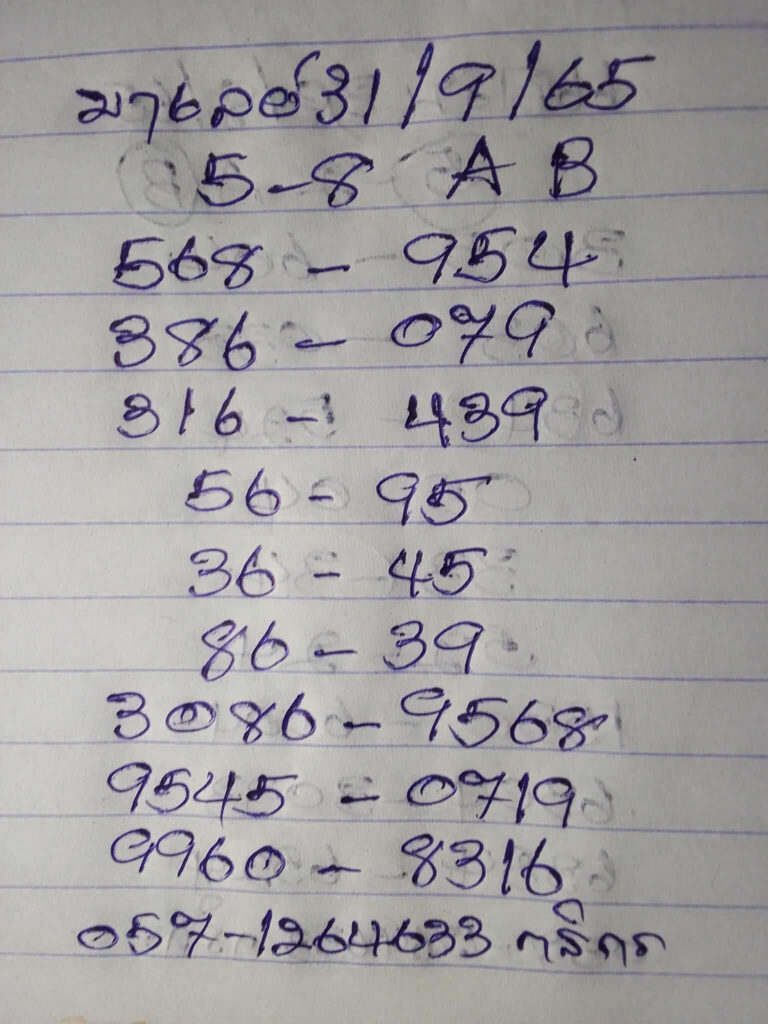 มาเลย์ 31/9/65
5-8 A B
568 - 954
386 - 079
316 - 439
56 - 95
36 - 45
86 - 39
3086 - 9568
9545 - 0719
9960 - 8316
057-1264633 กสิกร